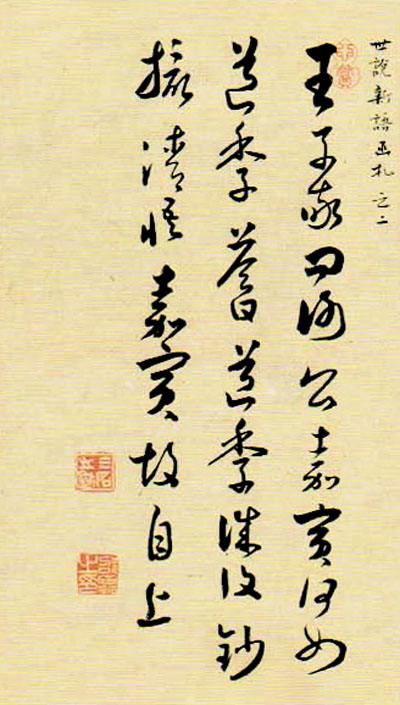 世說新語函札之二
王子敬問謝公嘉賓何如
道季荅曰道季誠復鈔
撮清悟嘉賓故自上